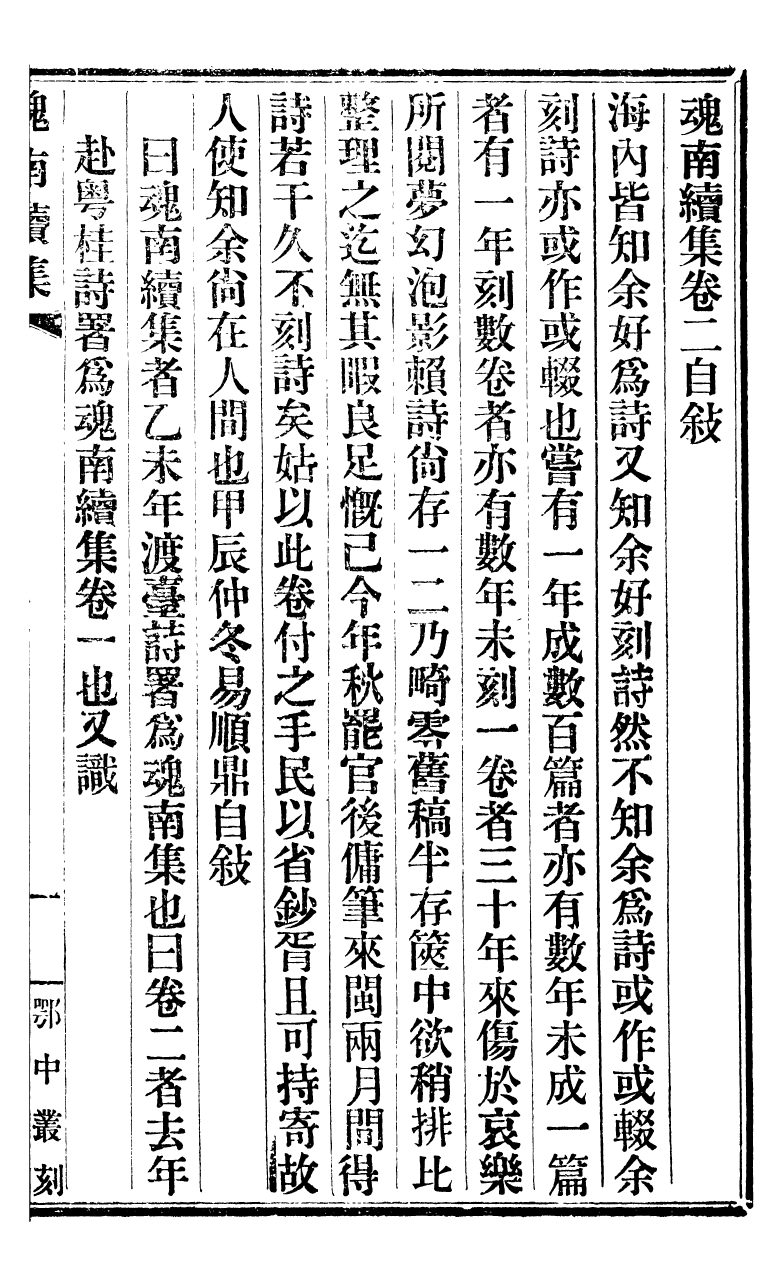 魂南續集卷二自敍
海內皆知余好爲詩又知余好刻詩然不知余爲詩或作或輟余
刻詩亦或作或輟也嘗有一年成數百篇者亦有數年未成一篇
者有一年刻數卷者亦有數年未刻一卷者三十年來傷於哀樂
所閱夢幻泡影賴詩尙存一二乃畸零舊稿半存篋中欲稍排比
整理之迄無其暇良足慨已今年秋罷官後傭筆來閩兩月間得
詩若干久不刻詩矣姑以此卷付之手民以省鈔胥且可持寄故
人使知余尙在人間也甲辰仲冬易順鼎自敍
曰魂南續集者乙未年渡臺詩署爲魂南集也曰卷二者去年
赴粵桂詩署爲魂南續集卷一也又識
魂南續集
一
鄂中叢刻